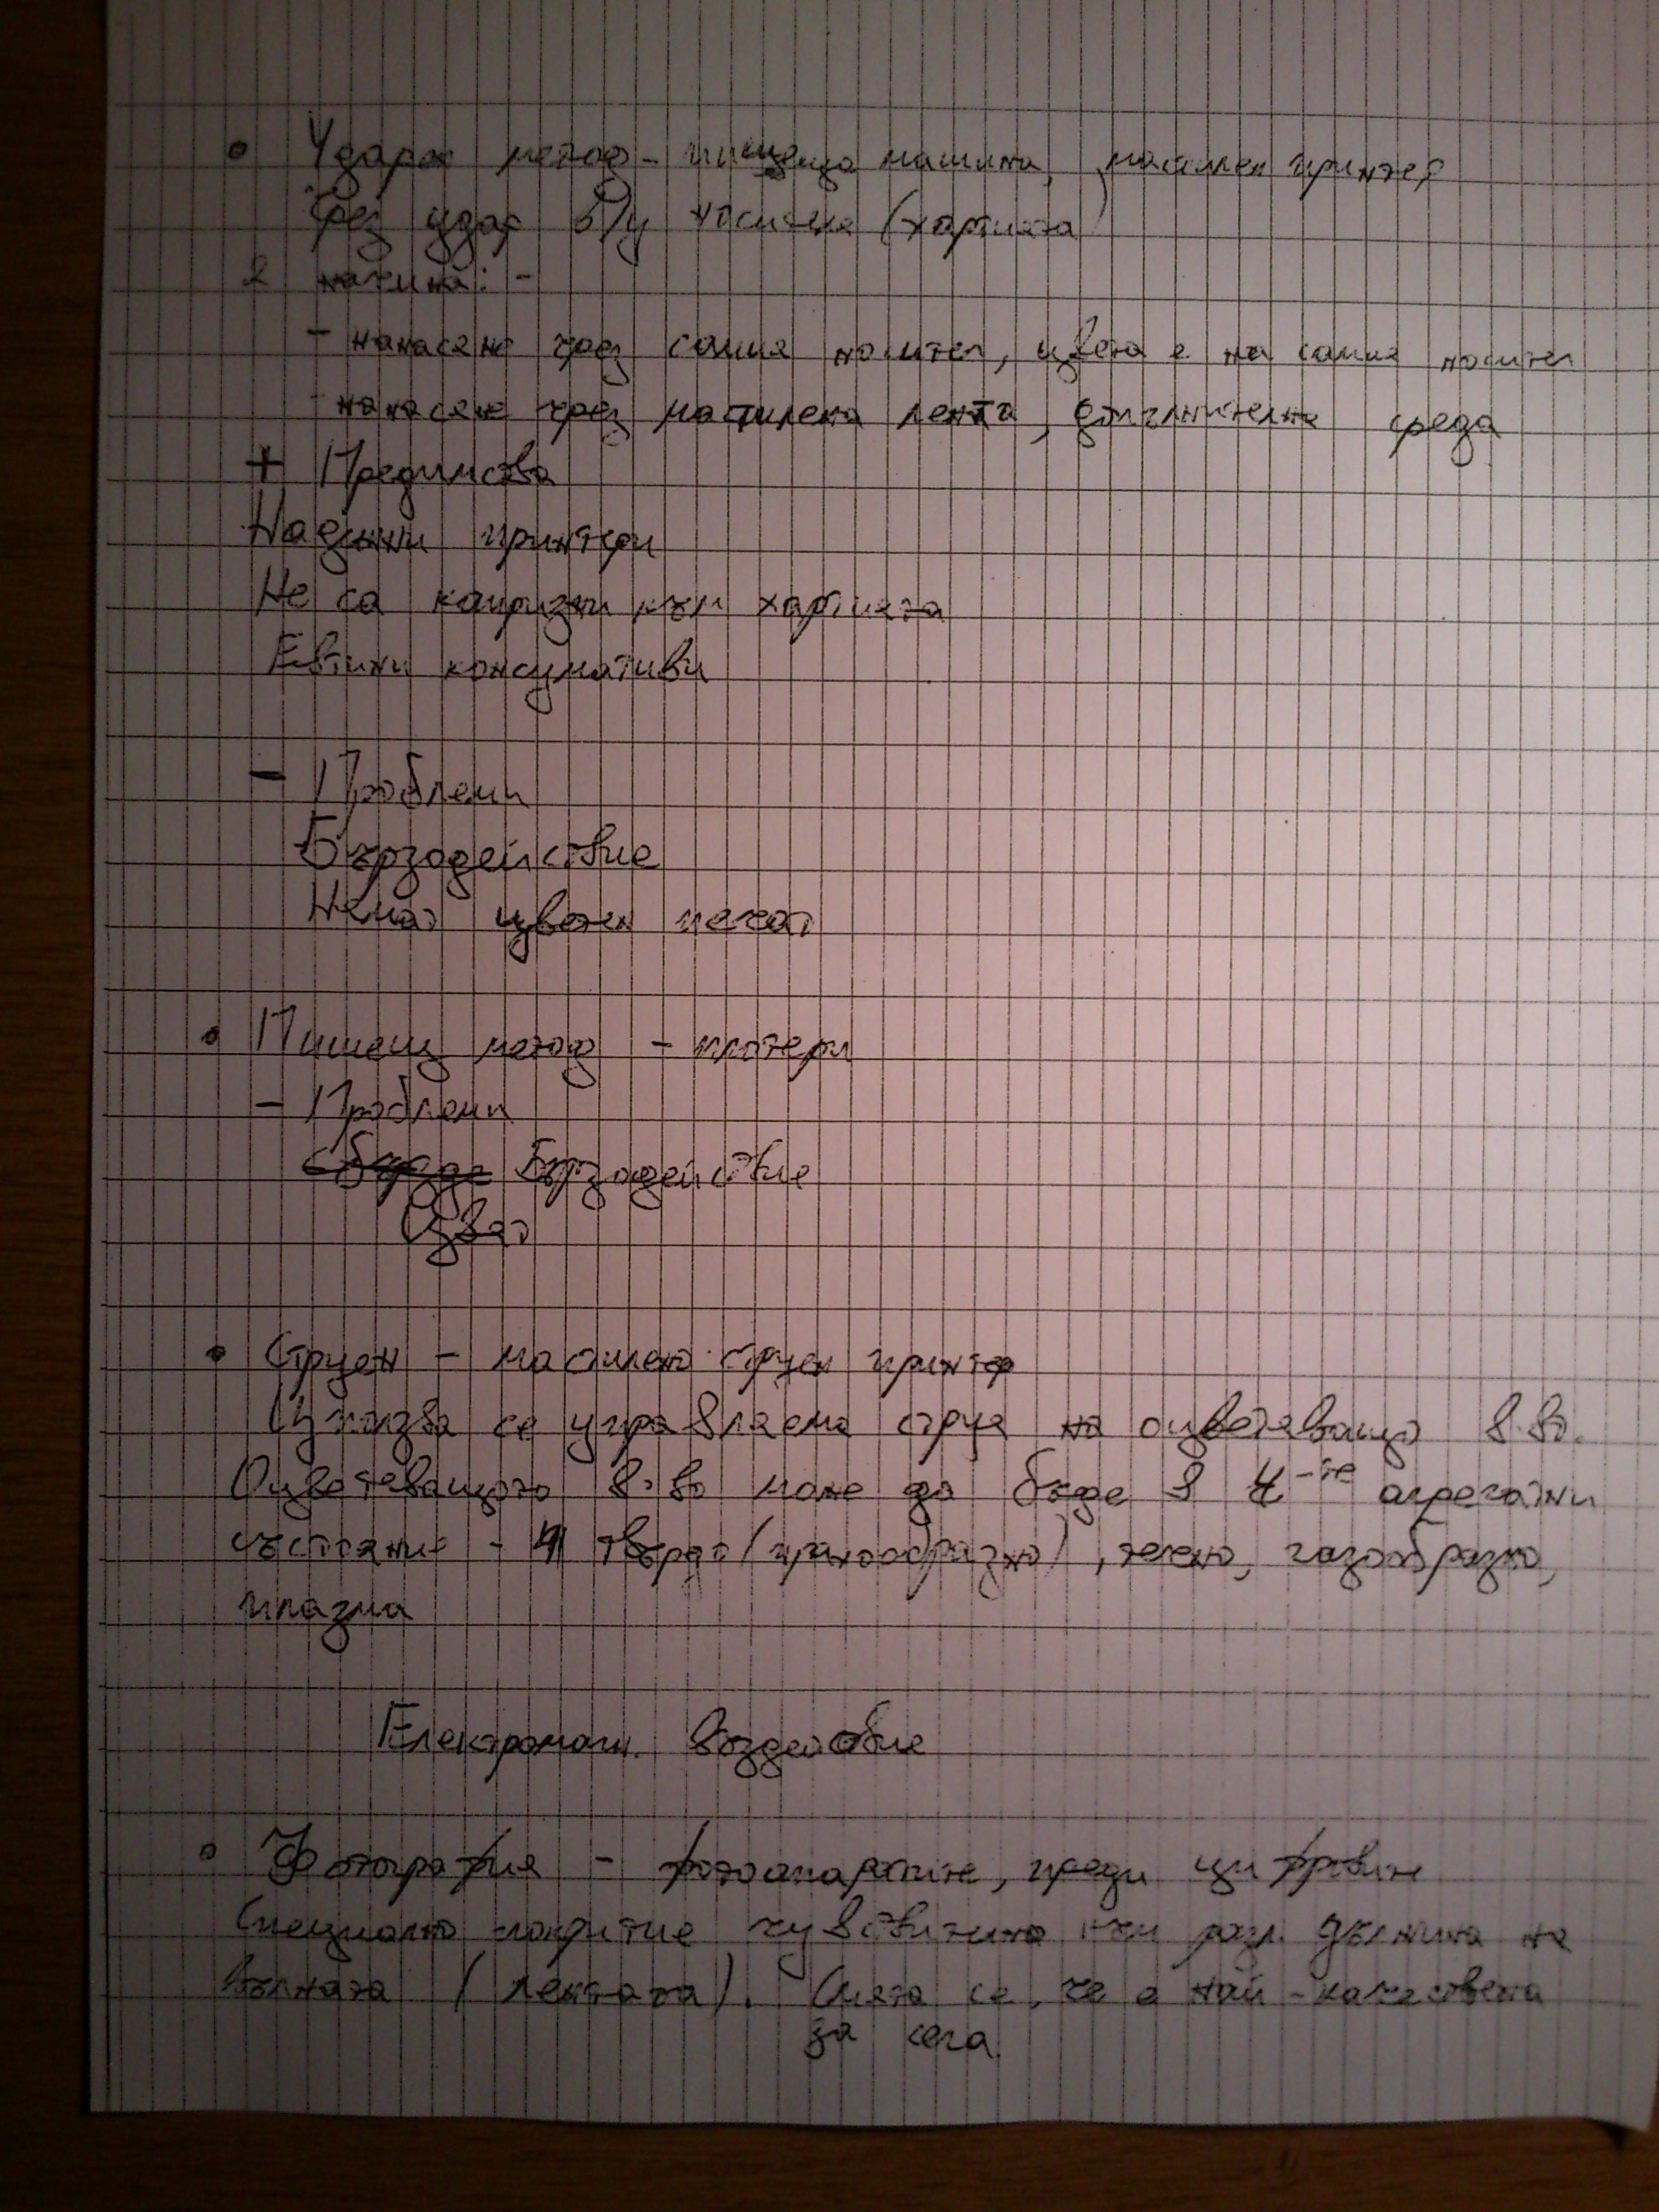 • Ударен метод - пишеща машина, мастилен принтер
чрез удар в/у носителя (хартията)
2 начина: -
- нанасяне чрез самия носител, цвета е на самия носител
- нанасяне чрез мастилена лента, допълнителна среда
+ Предимства
Надеждни принтери
Не са капризни към хартията
Евтини консумативи
- Проблеми
Бързодействие
Нямат цветен печат
• Пишещ метод - плотери
- Проблеми
Бързодействие
Цвят
• Струен - мастилено струен принтер
Използва се управляема струя на оцветяващо в-во.
Оцветяващото в-во може да бъде в 4-те агрегатни
състояние - твърдо (прахообразно), течно, газообразно,
плазма
Електромагн. Въздействие
• Фотография - фотоапаратите, преди цифровите
Специално покритие чувствително към разл. дължина на
вълната (лентата). Смята се, че е най-качествена
за сега.